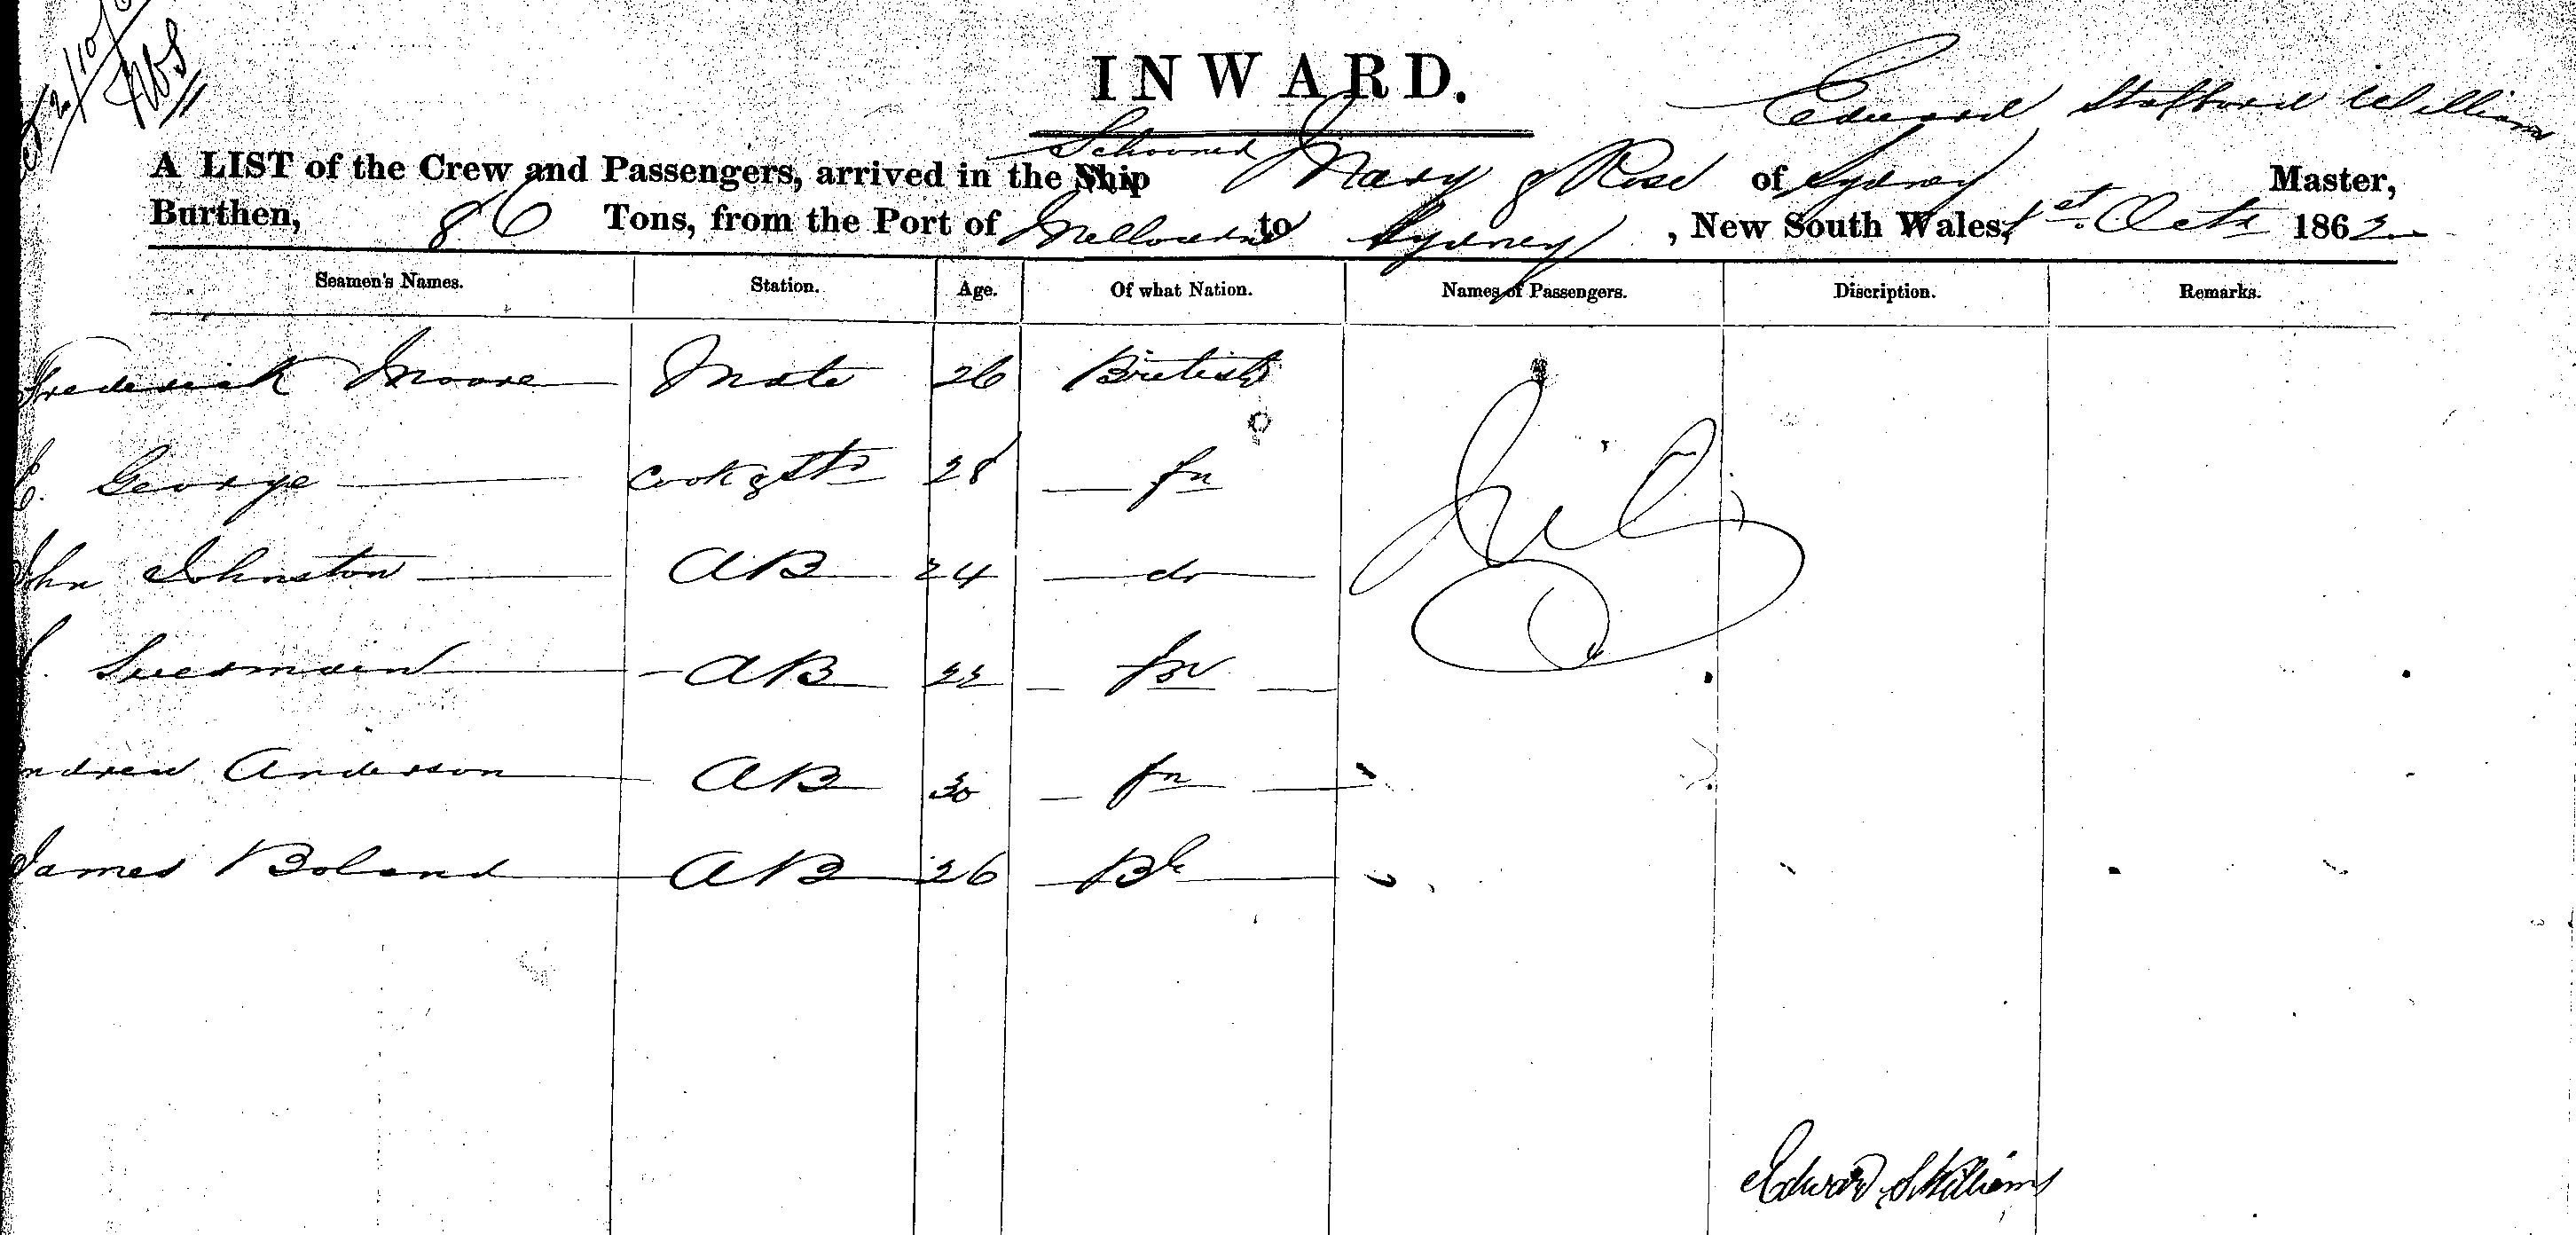 INWARD.
Edward Stafford Williams
Schooner
A LIST of the Crew and Passengers, arrived in the Ship Mary & Rose of Sydney Master,
Burthen, 86 Tons, from the Port of Melbourne to Sydney, New South Wales, 1st. Octr 1862
Seamen's Names. Station. Age. Of what Nation. Names of Passengers. Discription. Remarks.
Frederick Moore Mate 26 British
George Cook & Std 28 fn
John Johnston AB 24 do
AB 22 fn
Andrew Anderson AB 30 fn
James Boland AB 26 Bh
Edward S Williams